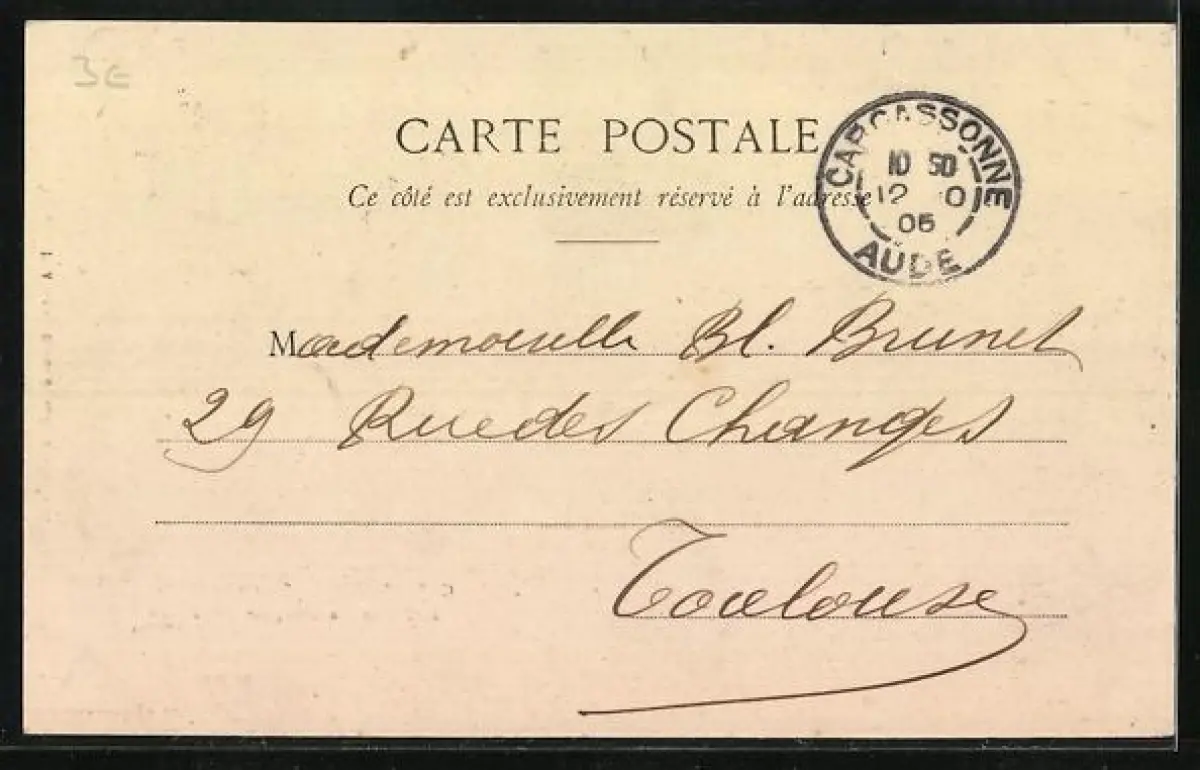 3€
CARTE POSTALE
Ce côté est exclusivement réservé à l'adresse
CARCASSONNE
10 50
12 0
05
AUDE
Mademoiselle Bl. Brunet
29 Rue des Changes
Toulouse